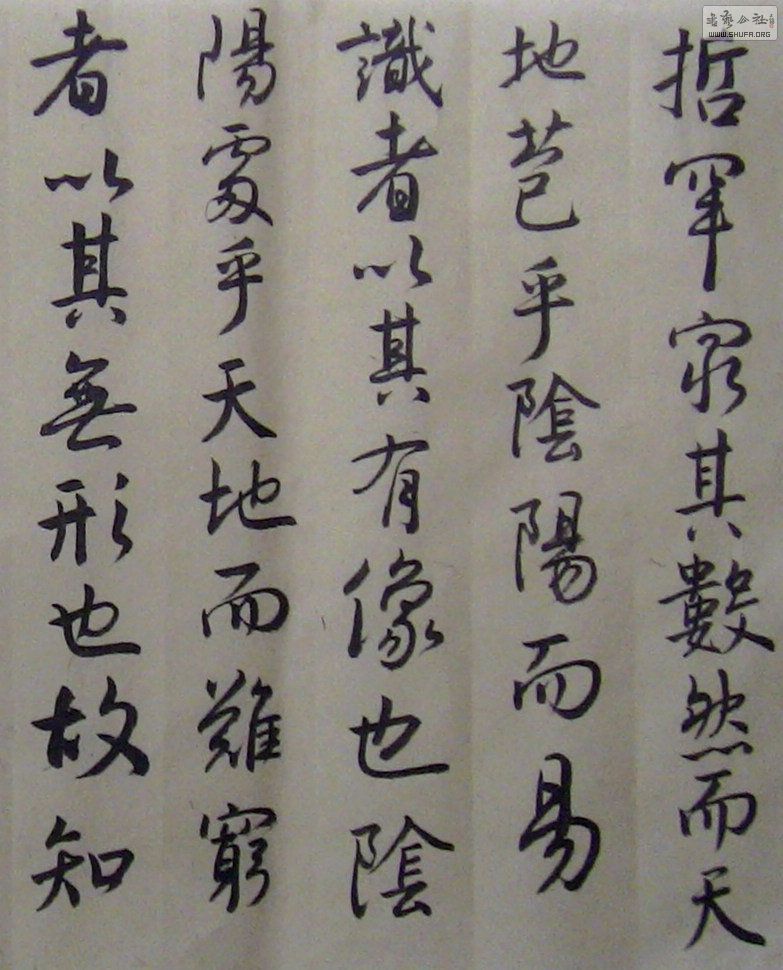 哲罕窮其數然而天
地苞乎陰陽而易
識者以其有像也陰
陽處乎天地而難窮
者以其無形也故知
WWW.SHUFA.ORG